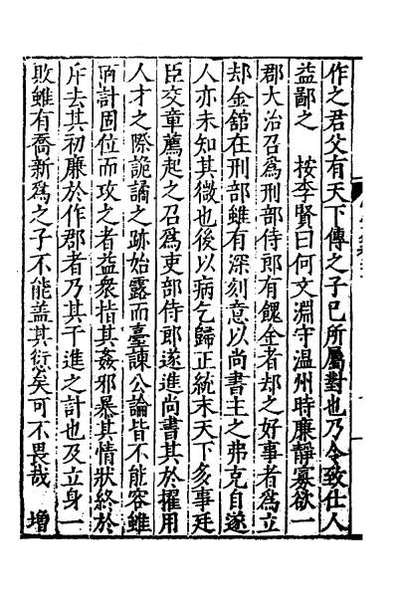 作之君父有天下傳之子已所屬對也乃令致仕人
益鄙之　按李賢曰何文淵守温州時廉靜寡欲一
郡大治召爲刑部侍郎有餽金者却之好事者爲立
却金舘在刑部雖有深刻意以尚書主之弗克自遂
人亦未知其微也後以病乞歸正統末天下多事廷
臣交章薦起之召爲吏部侍郎遂進尚書其於擢用
人才之際詭譎之跡始露而臺諫公論皆不能容雖
百計固位而攻之者益衆指其姦邪暴其情狀終於
斥去其初廉於作郡者乃其干進之計也及立身一
敗雖有喬新爲之子不能盖其愆矣可不畏哉　增